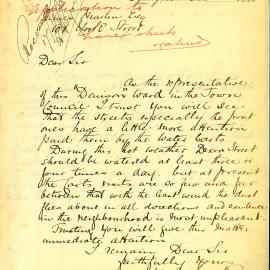 Application to
have streets
watered
York Street
Dear Sir
As the representative
of this Denison ward in the Town
Council I trust You will see
that the streets especially the front
ones have a little more attention
paid them by the Water Carts
During this hot weather Dean Street
should be watered at least three or
four times a day, but at present
the Carts visits are so few and far
between that with the least wind the dust
flies about in all directions and existence
in the neighbourhood is most unpleasant.
Trusting You will give this matter
immediate attention
I remain Dear Sir
faithfully Yours